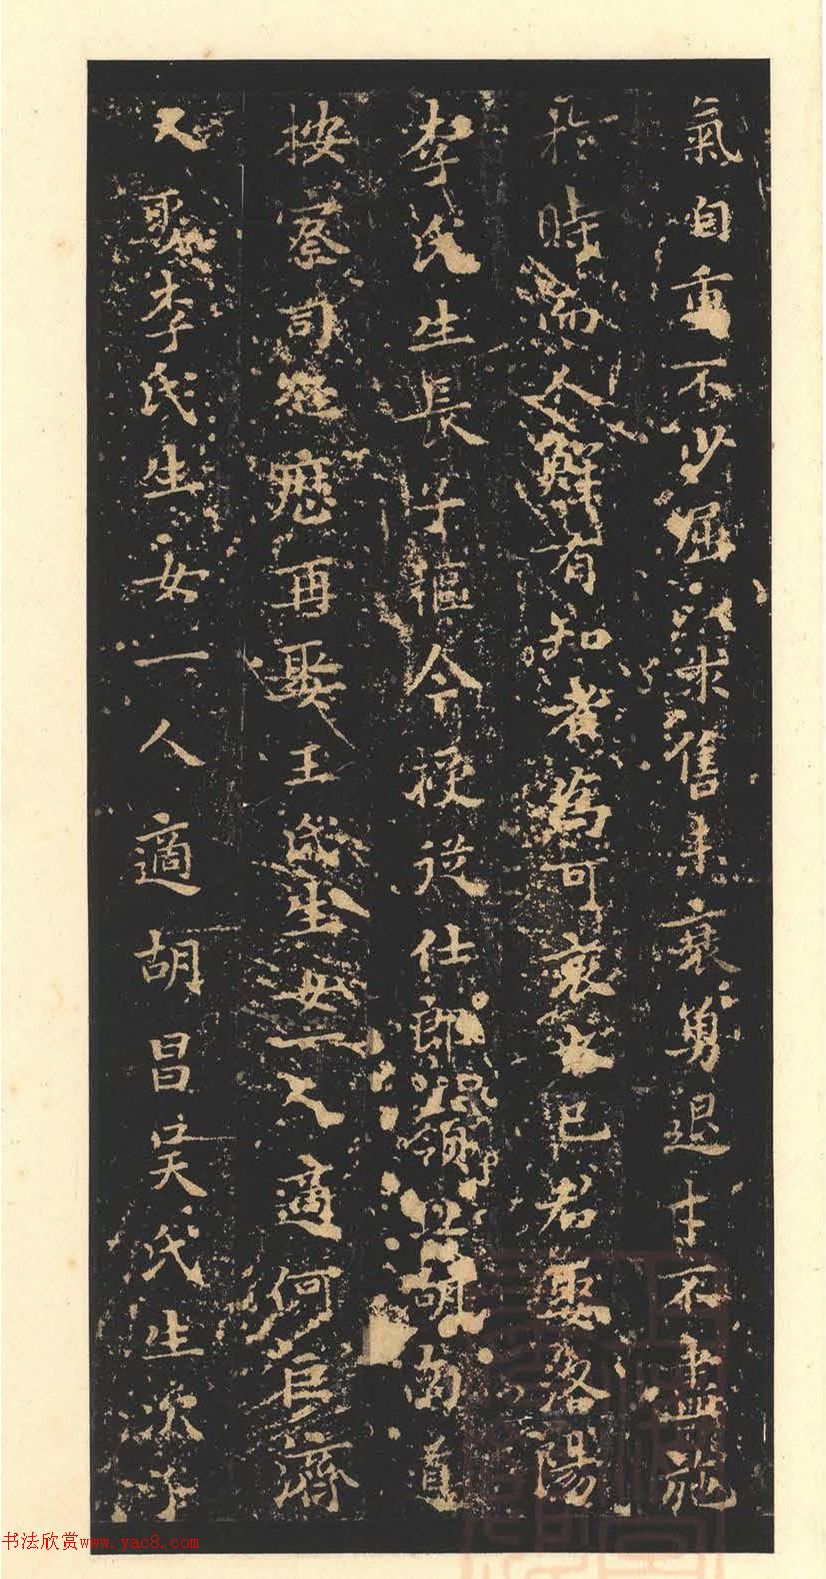 氣自重不少屈以求售未衰勇退才不盡施
於時而人鮮有知者為可哀也已君娶洛陽
李氏生長子樞今授從仕郎江領江胡南道
按察司經歷再娶王氏生女一人適何巨濟
又娶李氏生女一人適胡昌吳氏生次子
书法欣赏www.yac8.com